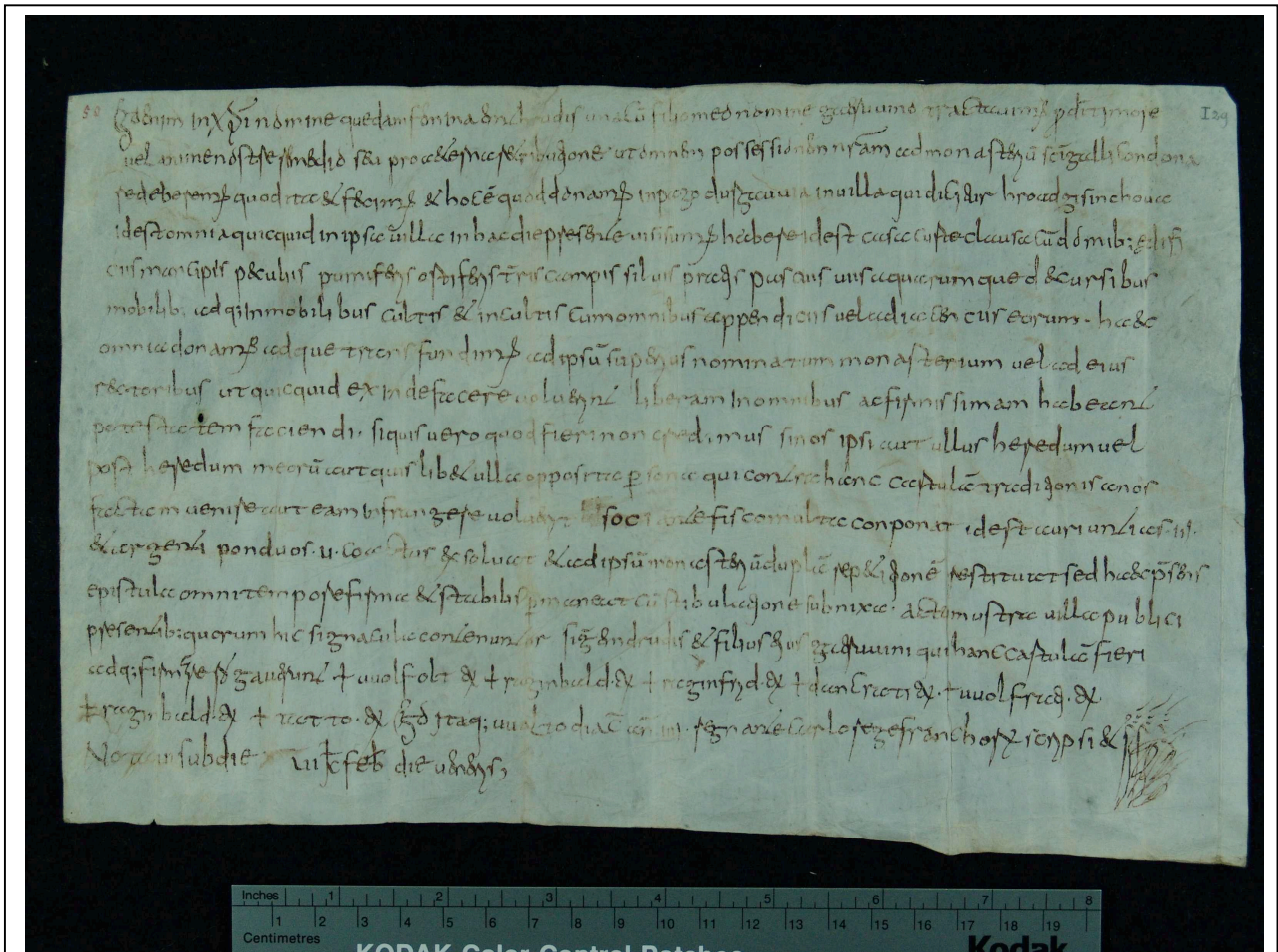 50 Ego enim in Xpi nomine quedam femina endrudis una cũ filio meo nomine gauuino tractauim; p di timore I 29
vel animę nostre remedio seu pro aeterna retributione ut omnem possessionem nr̃am ad monasteriũ sci galli condona
re deberem; quod ita et fecim; & hoc ẽ quod donam; in pago durgauuia in villa qui dicitur hroadgisinchoua
id est omnia quicquid in ipsa villa in hac die presente visi sum; habere id est casa curte clausa cũ domib; edifi
ciis mancipiis peculiis pumiferis ostiferis terris campis siluis pratis pascuis uiis aquarumque decursibus
mobilib; adq; inmobilibus cultis & incultis cum omnibus appendiciis uel adiacenciis eorum. haec
omnia donam; adque transfundim; ad ipsũ superius nominatum monasterium uel ad eius
rectoribus ut quicquid exinde facere uoluerint liberam in omnibus ac firmissimam habeant
potestatem faciendi. si quis uero quod fieri non credimus si nos ipsi aut ullus heredum uel
post heredum meorũ aut quislibet ulla opposita persona qui contra hanc cartulã traditionis a nos
factam uenire aut eam infrangere uoluerit sociante fisco multa conponat id est auri untias .II.
& argenti ponduos .V. coactus exsoluat & ad ipsũ monasteriũ duplã repetitionẽ restituat sed haec presens
epistula omni tempore firma & stabilis permaneat cũ stibulatione subnixa. actum ustra uilla publici
presentib; quorum hic signacula contenuntur sig̃ endrudis & filius eius gauuini qui hanc cartulã fieri
adq; firmare + uuolfolt + raginbald + raginfrid + dancrati + uuolfrad
+ raginbald + tatto Ego itaq; uualto diac̃ regnante carlo rege franchor scripsi &
Notaui sub die VII kl feb̃ die ueneris;